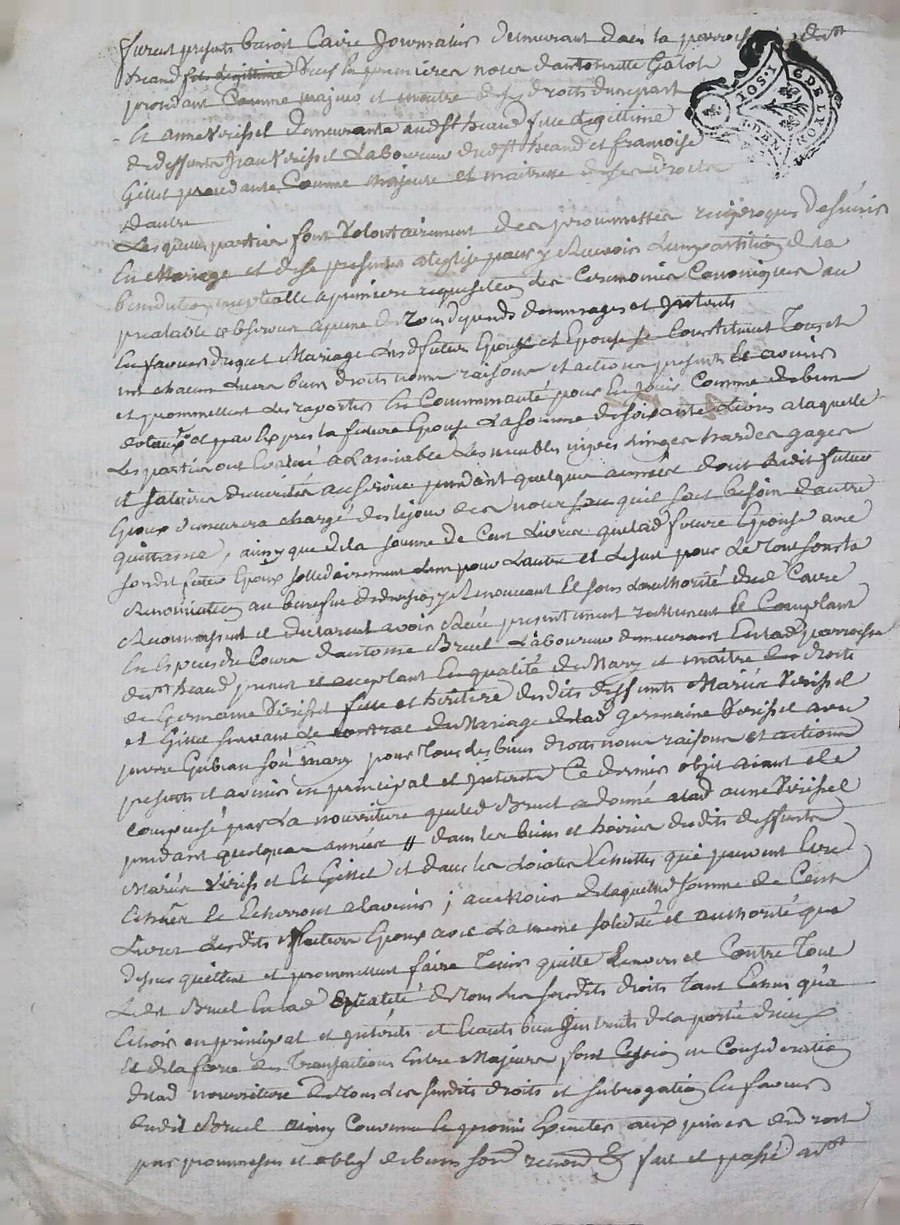 furent presents benoit Caire Journalier demeurant dans la parroisse dudt
heand fils legittime veuf en premieres noces d'antoinette Galot
procedant Comme majeur et maitre de ses droits d'une part
Et anne Virissel demeurante audt st heand fille legittime
de deffunts Jean Virissel Laboureur dudt st heand et francoise
Gillet procedante Comme majeure et maitresse de ses droits
d'autre
Lesquels parties font volontairement des promesses reciproques de s'unir
En Mariage et de se presenter a l'eglise pour y recevoir l'impartition de la
benediction nuptialle a premiere requisition les Ceremonies Canoniques au
prealable observées a peine de tous depends dommages et Interets
En faveur duquel Mariage lesd futurs Epoux et Epouse se Constituent Tous et
un chacun leurs biens droits noms raisons et actions presents et avenir
et promettent les raporter En Communauté pour En jouir Comme de biens
dotaux et par Exprès la future Epouse La somme de soixante Livres a laquelle
Les parties ont Evalué a l'amiable Les meubles linges hardes gages
et salaires au service pendant quelques années dont ledit futur
Epoux demeurera chargé des le jour de ses noces sans qu'il soit besoin d'autre
quittance, ainsy que de la somme de Cent Livres que lad future Epouse avec
sondit futur Epoux sollidairement l'un pour l'autre et le seul pour le Tout sous la
Renonciation au benefice de division y Renonceant Et sous l'authorité dud Caire
Reconnoissent et declarent avoir Receu presentement reellement et Comptant
En Especes de Cours d'antoine Bruel Laboureur demeurant En lad parroisse
du st heand present et acceptant En qualité de Mary et maître des droits
de Germaine Virissel fille et heritiere desdits deffunts Virissel
et Gillet suivant le Contrat de Mariage de lad germaine Virissel avec
son mary pour Tous les biens droits noms raisons et actions
presents et avenir en principal et Interets Ce dernier objet aiant été
Compensé par La nourriture que led Bruel a donné a lad anne Virissel
pendant quelques années // dans les biens et hoirie desdits deffunts
Virissel Et Gillet et dans les Loiales Echuttes qui peuvent Etre
Echües Et Echerront a l'avenir; au Moien de laquelle somme de Cent
Livres Lesdits futurs Epoux avec La meme solidité et authorité que
dessus quittent et promettent faire Tenir quitte Envers et Contre Tout
Ledt Bruel En lad qualité de Tous les susdits droits Tant Echus qu'a
Echoir en principal et Interets et Etants bien Instruits de la portée d'iceux
Et de la force des Transactions Entre Majeurs font Cession en Consideration
de lad nourriture de Tous les susdits droits et subrogation En faveur
dudit Bruel ainsy Convenu Et promis Executer aux peines de droit
par promesses et oblig de biens soumd renond & fait et passé audt